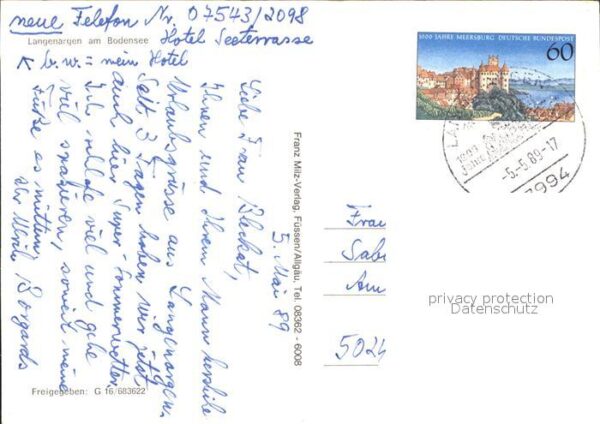 neue Telefon Nr. 07543/2098
Langenargen am Bodensee
Hotel Seeterrasse
b.w. = mein Hotel
5. Mai 89
Liebe Frau
Ihnen und Ihrem Mann herzliche
Urlaubsgrüsse aus Langenargen
Seit 3 Tagen haben wir jetzt
auch hier Super-Sommerwetter
Ich radle viel und gehe
viel spazieren, soweit meine
Füße es mitten
Ihre
Franz Milz-Verlag, Füssen/Allgäu, Tel. 08362 - 6008
Freigegeben: G 16/683622
1000 JAHRE MEERSBURG DEUTSCHE BUNDESPOST
60
-5.-5.89-17
7994
Frau
Sab
Am
5024
privacy protection
Datenschutz